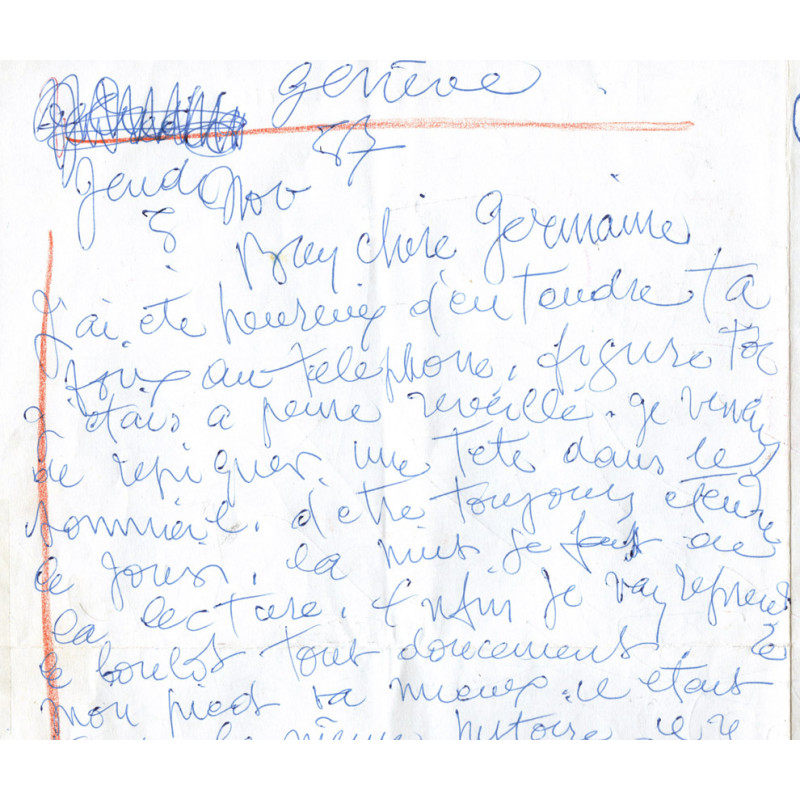 Genève
Jeudi Nov 87
5
Bien chère Germaine
J'ai été heureux d'entendre ta
voix au telephone, figure toi
j'étais a peine reveillé. je venais
de repiquer une tete dans le
sommeil. d'etre toujours etendu
le jour, la nuit je fais de
la lecture. Enfin je vay reprendre
le boulot tout doucement. le
mon pied va mieux. ce etait
la même histoire